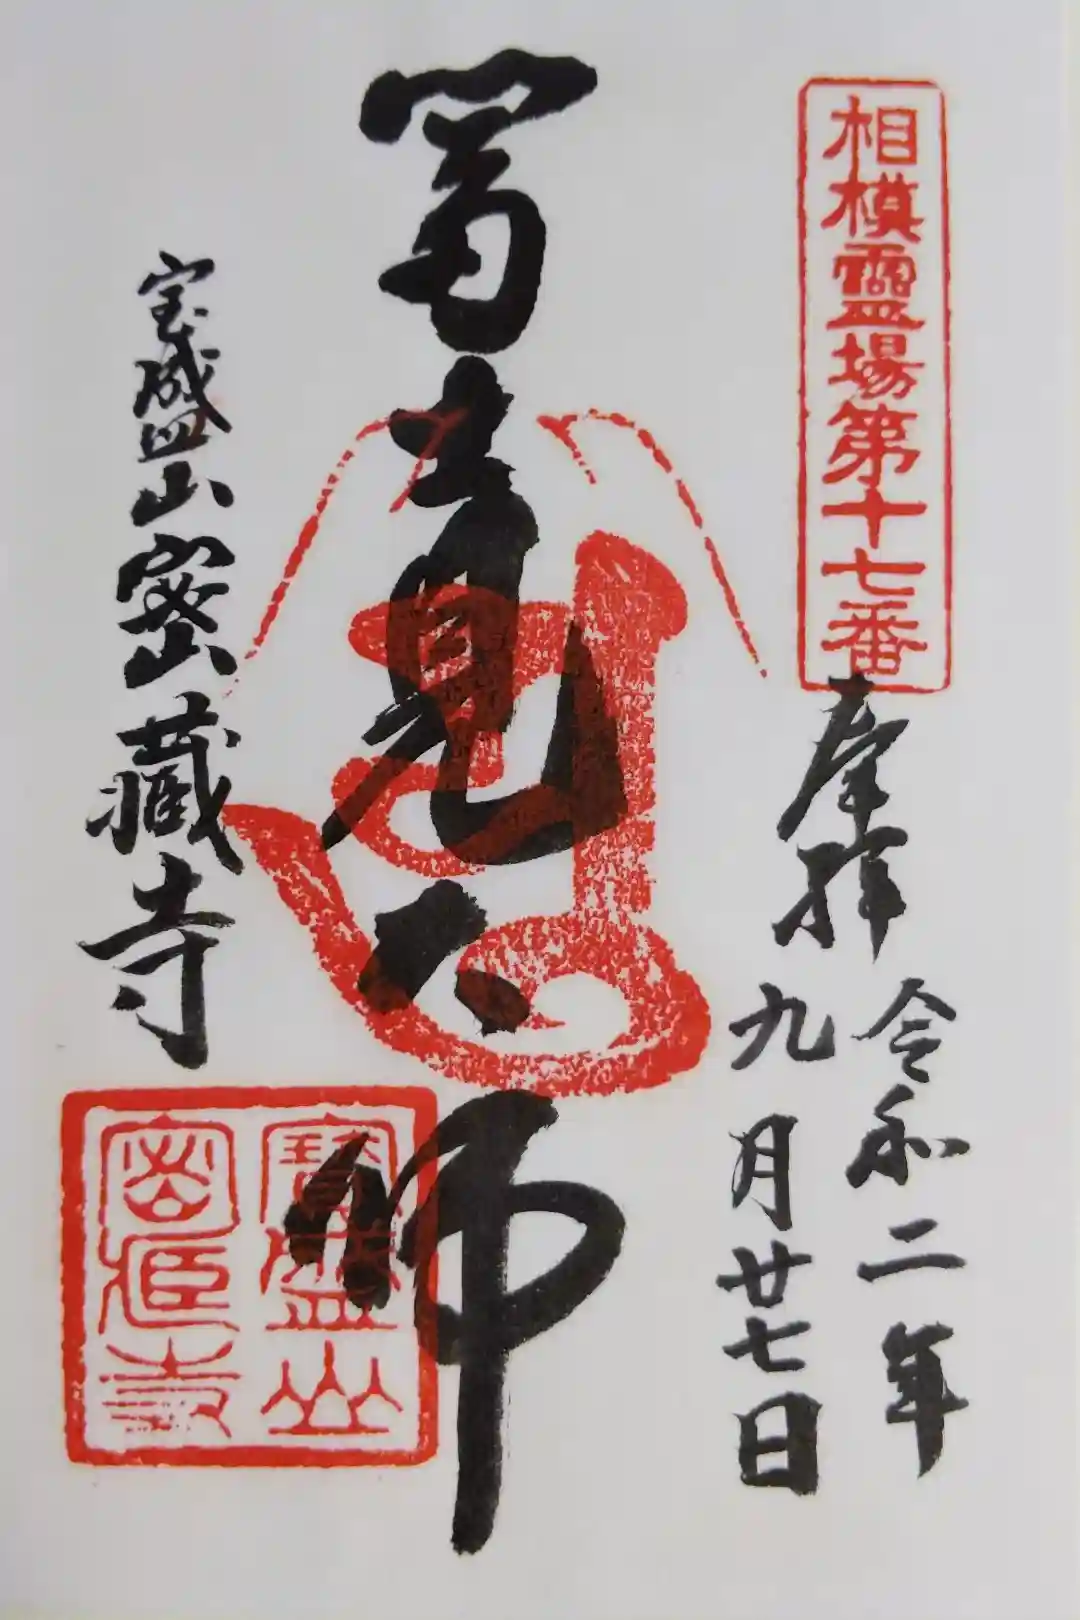 相模霊場第十七番
奉拝
令和二年
九月廿七日
冨士見大師
宝盛山密蔵寺
寶盛山
密蔵寺